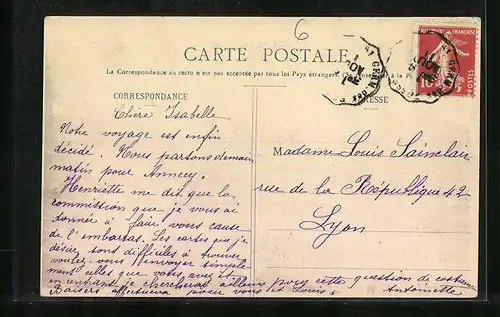 6
CARTE POSTALE
La Correspondance au recto n'est pas acceptée par tous les Pays étrangers. (Se renseigner à la Poste)
CORRESPONDANCE
ADRESSE
Chère Isabelle
Notre voyage est enfin
décidé. Nous partons demain
matin pour Annecy.
Henriette me dit que la
commission que je vous ai
donnée à faire vous cause
de l'embarras. Les cartes que je
désire sont difficiles à trouver
voulez-vous m'envoyer simple
ment celles que vous avez et
je chercherai ailleurs pour cette question de costume
Baisers affectueux pour vous et Louis. Antoinette
Madame Louis Sainclair
rue de la République 42
Lyon
10
POSTES